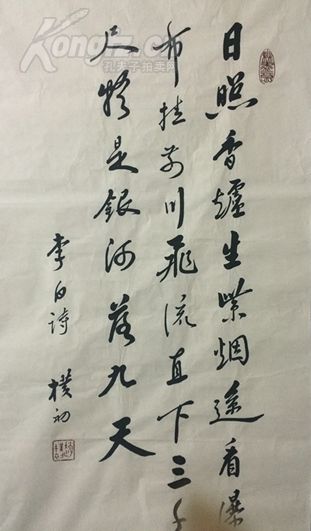 日照香炉生紫烟遥看瀑
布挂前川飞流直下三千
尺疑是银河落九天
李白诗
朴初
Kongfz.cn
孔夫子拍卖网